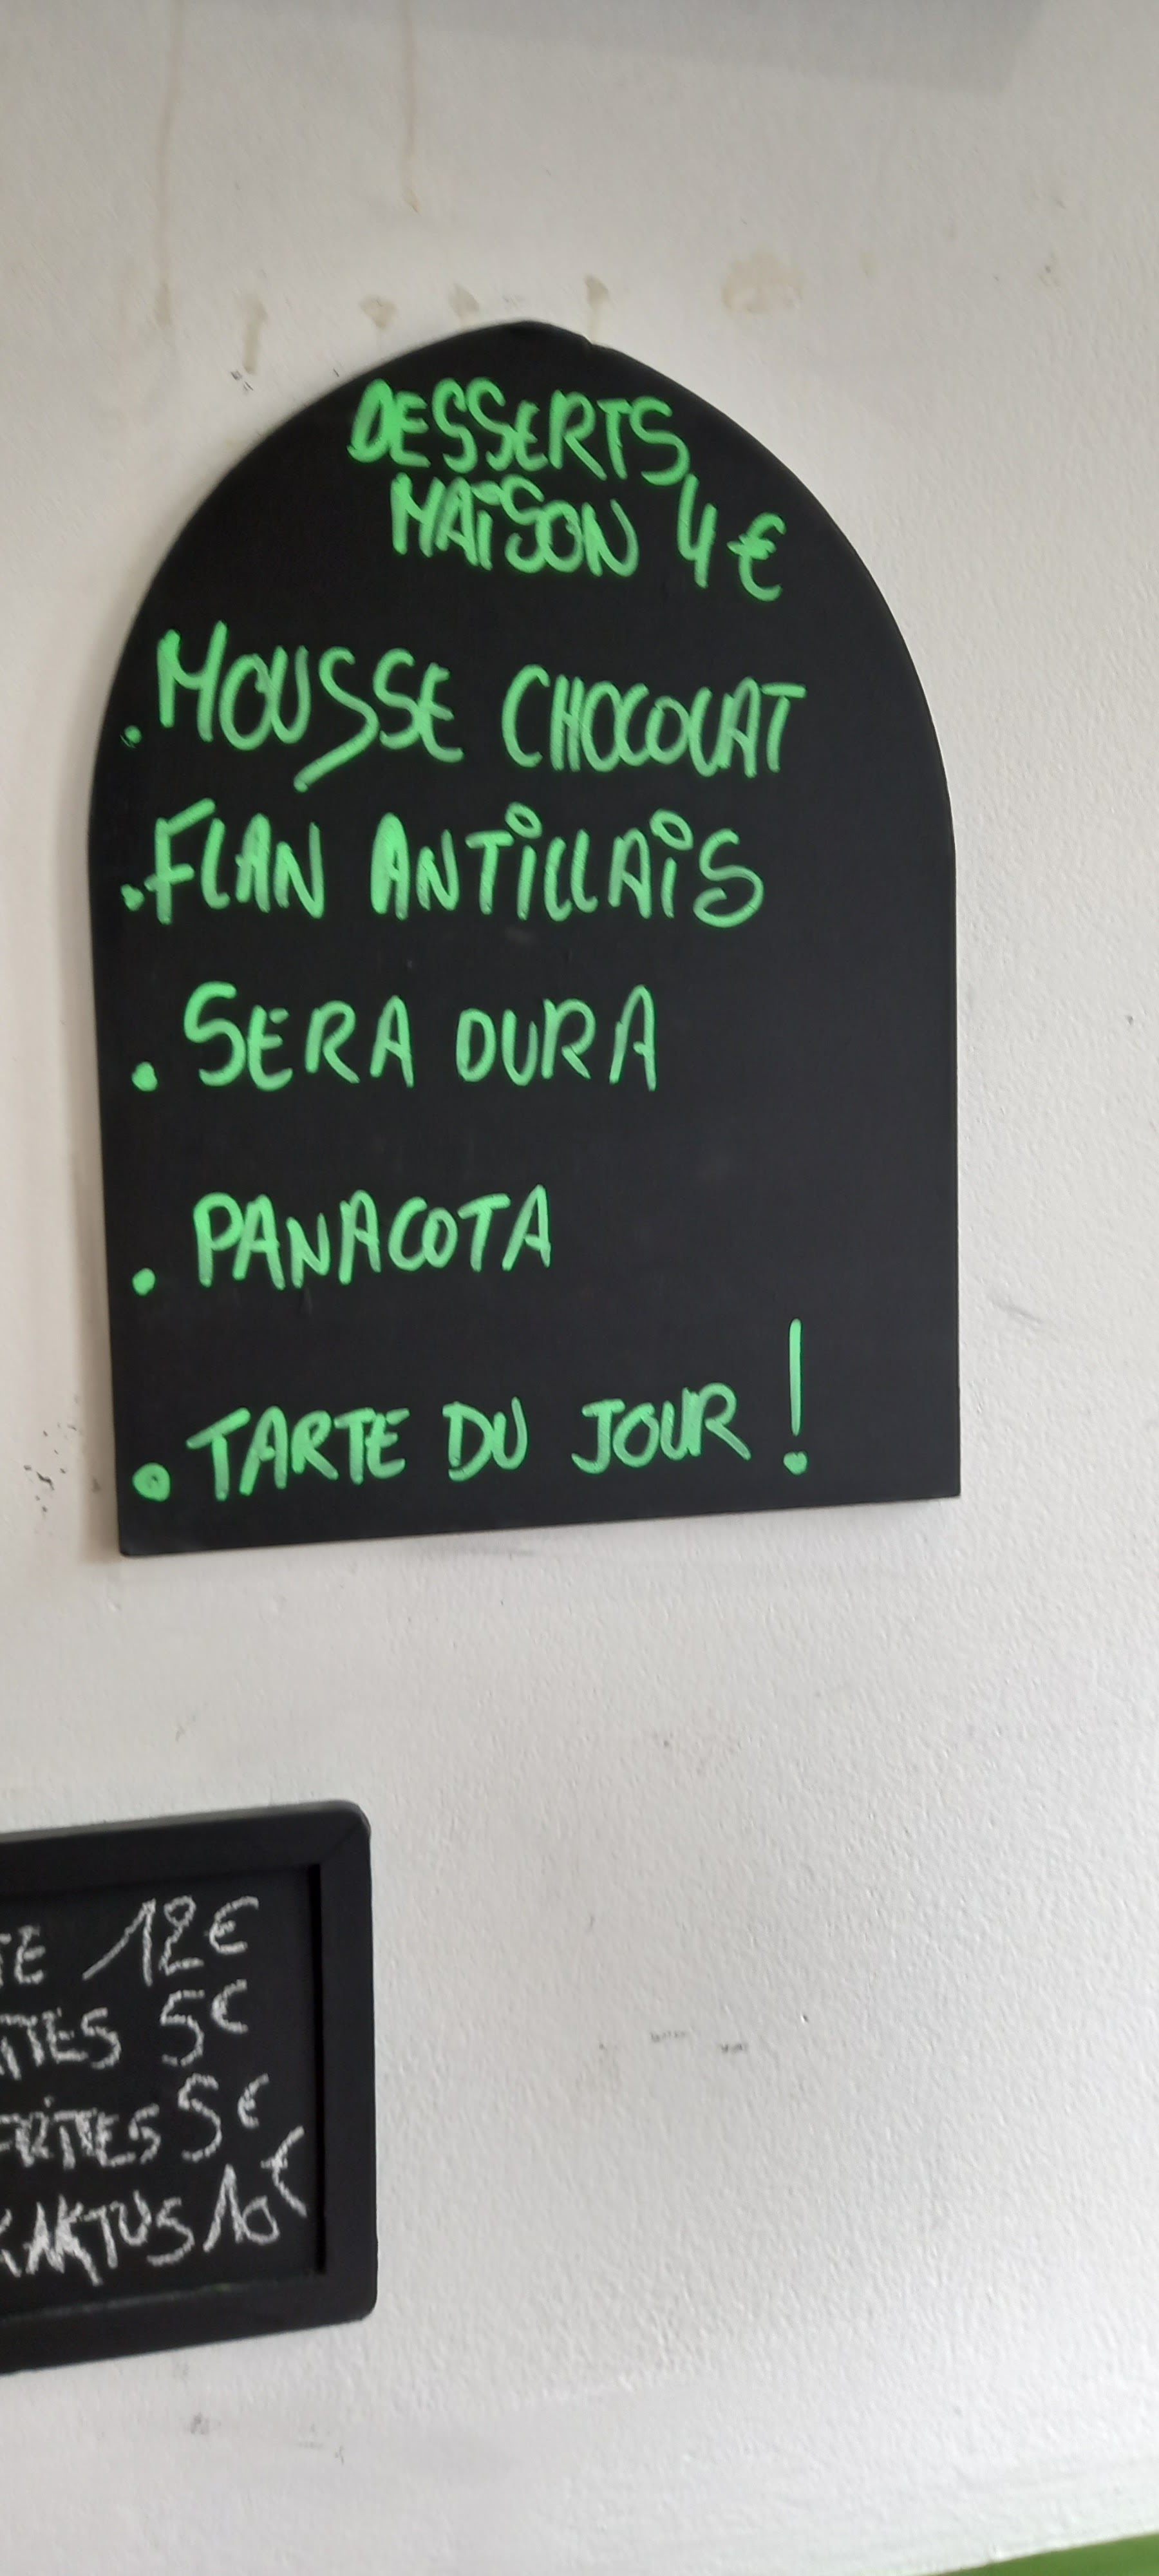 DESSERTS
MAISON 4€
. MOUSSE CHOCOLAT
. FLAN ANTILLAIS
. SERA DURA
. PANACOTA
. TARTE DU JOUR !
12€
5€
FRITES 5€
KAKTUS 10€